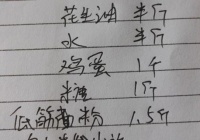 花生油 半斤
水 半斤
鸡蛋 1斤
糖 1斤
低筋面粉 1.5斤